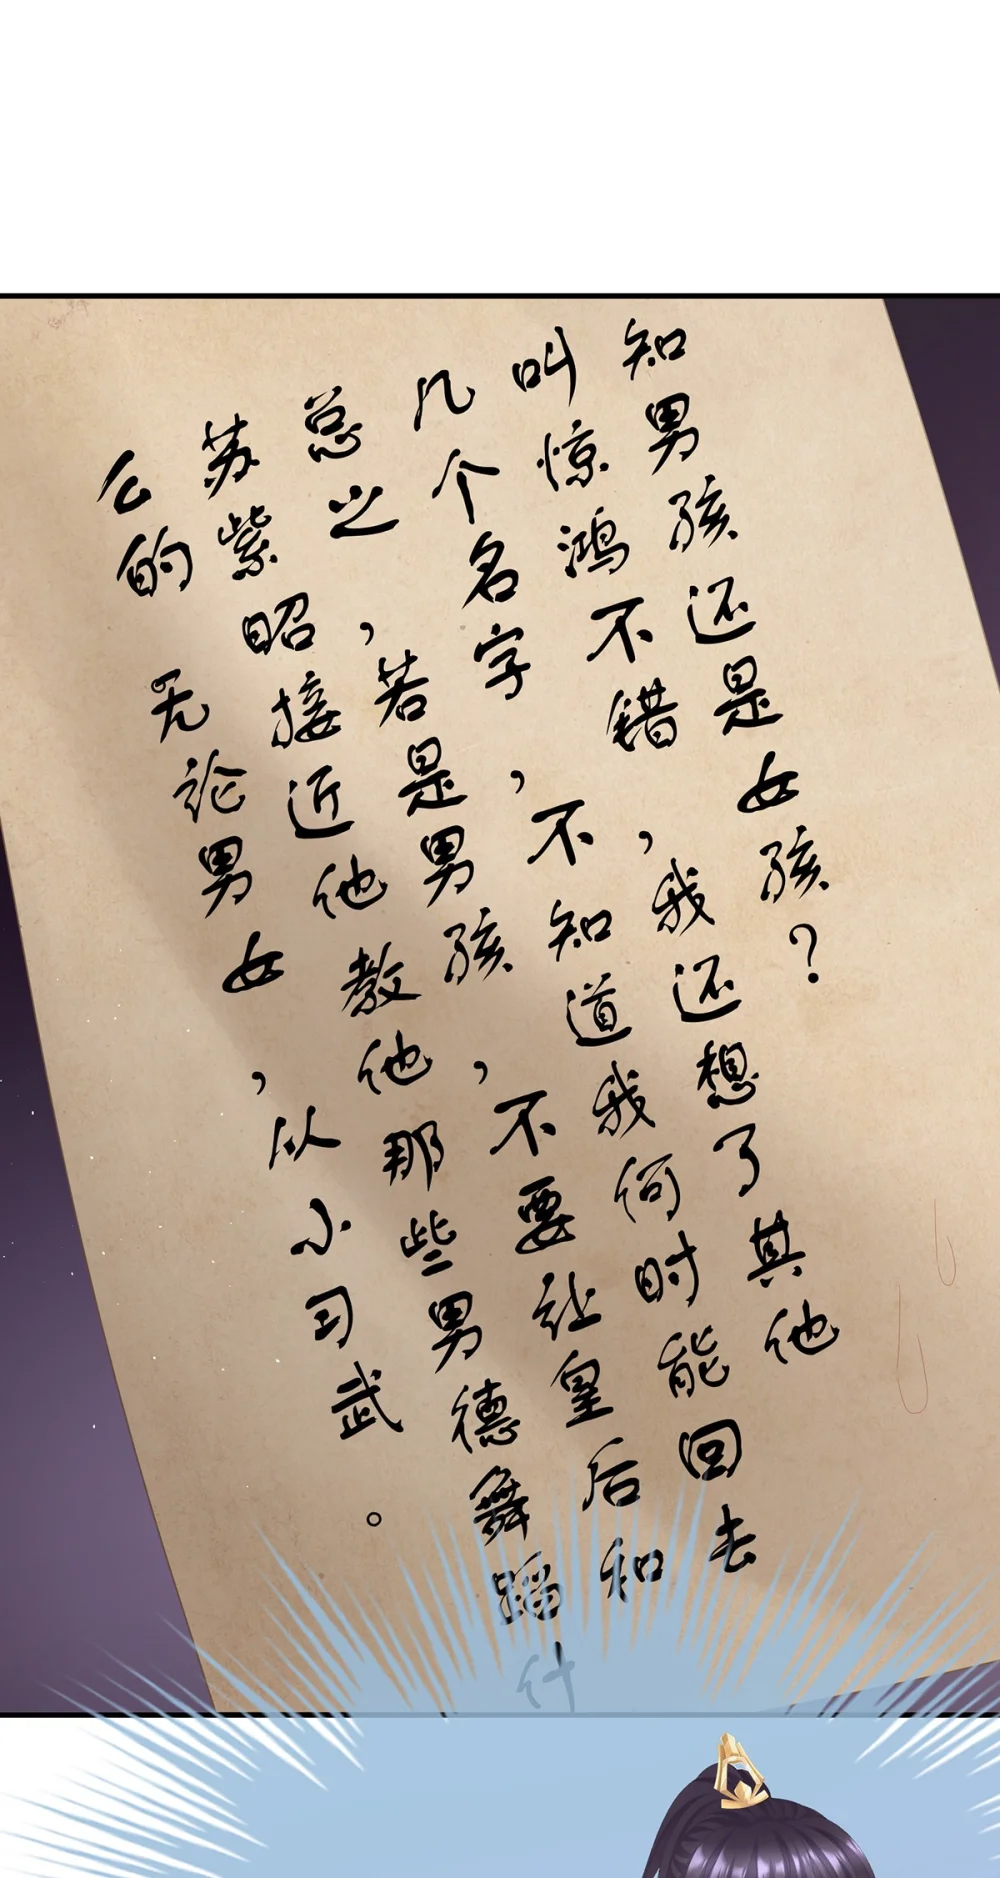 知男孩还是女孩？
叫惊鸿不错，我还想了其他
几个名字，不知道我何时能回去
总之，若是男孩，不要让皇后和
苏紫昭接近他教他那些男德舞蹈什
么的
无论男女，从小习武。